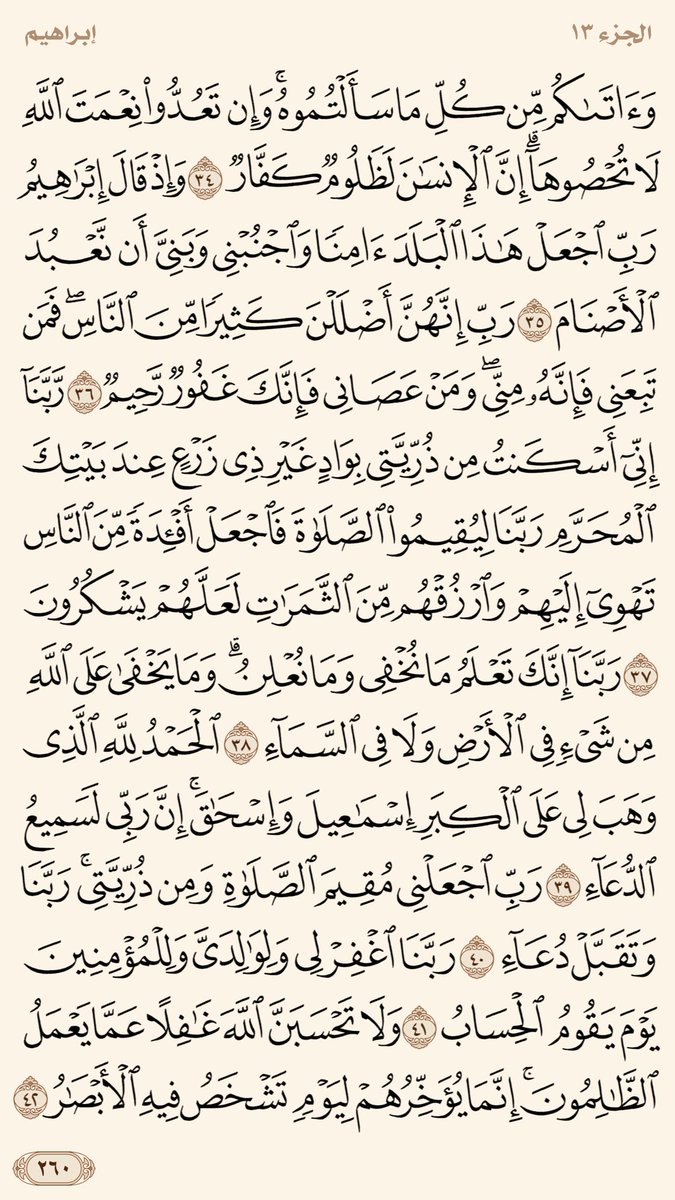 الجزء ١٣
إبراهيم
وَءَاتَىٰكُم مِّن كُلِّ مَا سَأَلْتُمُوهُ ۚ وَإِن تَعُدُّوا۟ نِعْمَتَ ٱللَّهِ
لَا تُحْصُوهَآ ۗ إِنَّ ٱلْإِنسَـٰنَ لَظَلُومٌ كَفَّارٌ ٣٤ وَإِذْ قَالَ إِبْرَٰهِيمُ
رَبِّ ٱجْعَلْ هَـٰذَا ٱلْبَلَدَ ءَامِنًا وَٱجْنُبْنِى وَبَنِىَّ أَن نَّعْبُدَ
ٱلْأَصْنَامَ ٣٥ رَبِّ إِنَّهُنَّ أَضْلَلْنَ كَثِيرًا مِّنَ ٱلنَّاسِ ۖ فَمَن
تَبِعَنِى فَإِنَّهُۥ مِنِّى ۖ وَمَنْ عَصَانِى فَإِنَّكَ غَفُورٌ رَّحِيمٌ ٣٦ رَّبَّنَآ
إِنِّىٓ أَسْكَنتُ مِن ذُرِّيَّتِى بِوَادٍ غَيْرِ ذِى زَرْعٍ عِندَ بَيْتِكَ
ٱلْمُحَرَّمِ رَبَّنَا لِيُقِيمُوا۟ ٱلصَّلَوٰةَ فَٱجْعَلْ أَفْـِٔدَةً مِّنَ ٱلنَّاسِ
تَهْوِىٓ إِلَيْهِمْ وَٱرْزُقْهُم مِّنَ ٱلثَّمَرَٰتِ لَعَلَّهُمْ يَشْكُرُونَ
٣٧ رَبَّنَآ إِنَّكَ تَعْلَمُ مَا نُخْفِى وَمَا نُعْلِنُ ۗ وَمَا يَخْفَىٰ عَلَى ٱللَّهِ
مِن شَىْءٍ فِى ٱلْأَرْضِ وَلَا فِى ٱلسَّمَآءِ ٣٨ ٱلْحَمْدُ لِلَّهِ ٱلَّذِى
وَهَبَ لِى عَلَى ٱلْكِبَرِ إِسْمَـٰعِيلَ وَإِسْحَـٰقَ ۚ إِنَّ رَبِّى لَسَمِيعُ
ٱلدُّعَآءِ ٣٩ رَبِّ ٱجْعَلْنِى مُقِيمَ ٱلصَّلَوٰةِ وَمِن ذُرِّيَّتِى ۚ رَبَّنَا
وَتَقَبَّلْ دُعَآءِ ٤٠ رَبَّنَا ٱغْفِرْ لِى وَلِوَٰلِدَىَّ وَلِلْمُؤْمِنِينَ
يَوْمَ يَقُومُ ٱلْحِسَابُ ٤١ وَلَا تَحْسَبَنَّ ٱللَّهَ غَـٰفِلًا عَمَّا يَعْمَلُ
ٱلظَّـٰلِمُونَ ۚ إِنَّمَا يُؤَخِّرُهُمْ لِيَوْمٍ تَشْخَصُ فِيهِ ٱلْأَبْصَـٰرُ ٤٢
٢٦٠